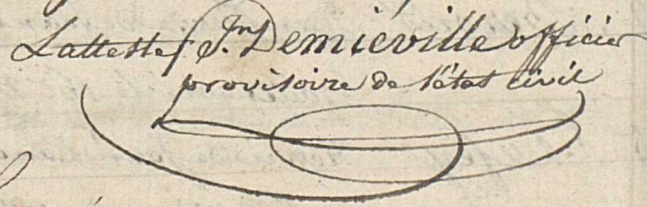 L'atteste Jn Demiéville officier
provisoire de l'état civil